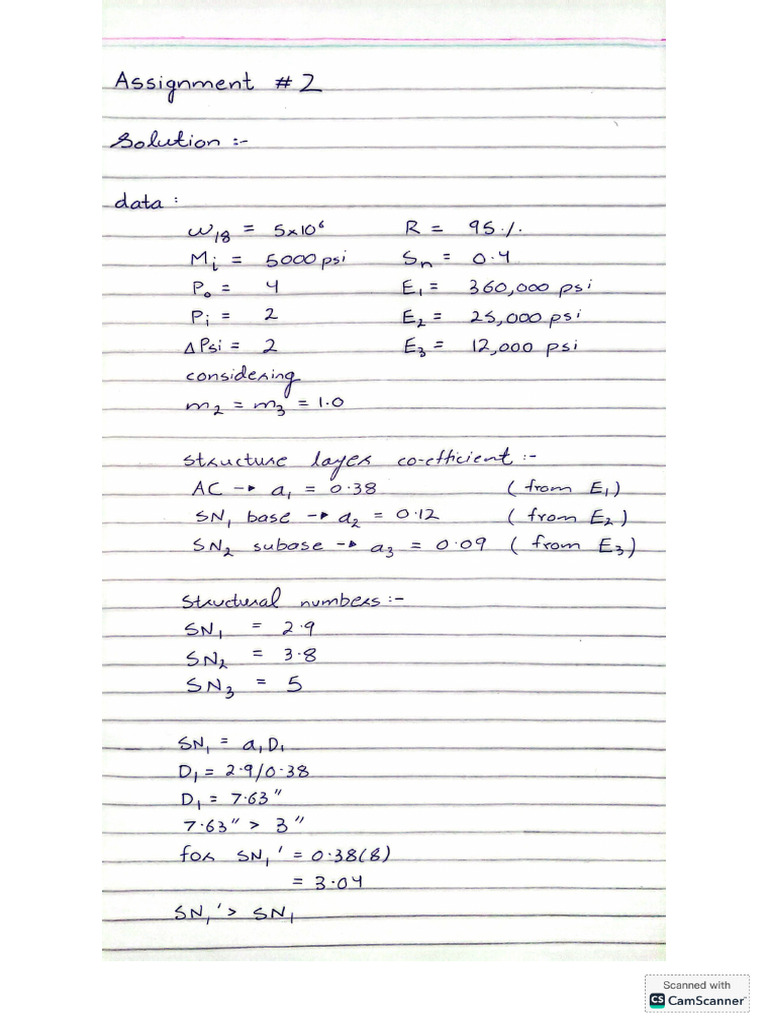 Assignment # 2
Solution :-
data :
W18 = 5x10⁶ R = 95 %.
Mi = 5000 psi Sn = 0.4
Po = 4 E1 = 360,000 psi
Pi = 2 E2 = 25,000 psi
ΔPsi = 2 E3 = 12,000 psi
considering
m2 = m3 = 1.0
structure layer co-efficient :-
AC → a1 = 0.38 ( from E1 )
SN1 base → a2 = 0.12 ( from E2 )
SN2 subase → a3 = 0.09 ( from E3 )
Structural numbers :-
SN1 = 2.9
SN2 = 3.8
SN3 = 5
SN1 = a1D1
D1 = 2.9/0.38
D1 = 7.63"
7.63" > 3"
for SN1' = 0.38(8)
= 3.04
SN1' > SN1
Scanned with
CS CamScanner